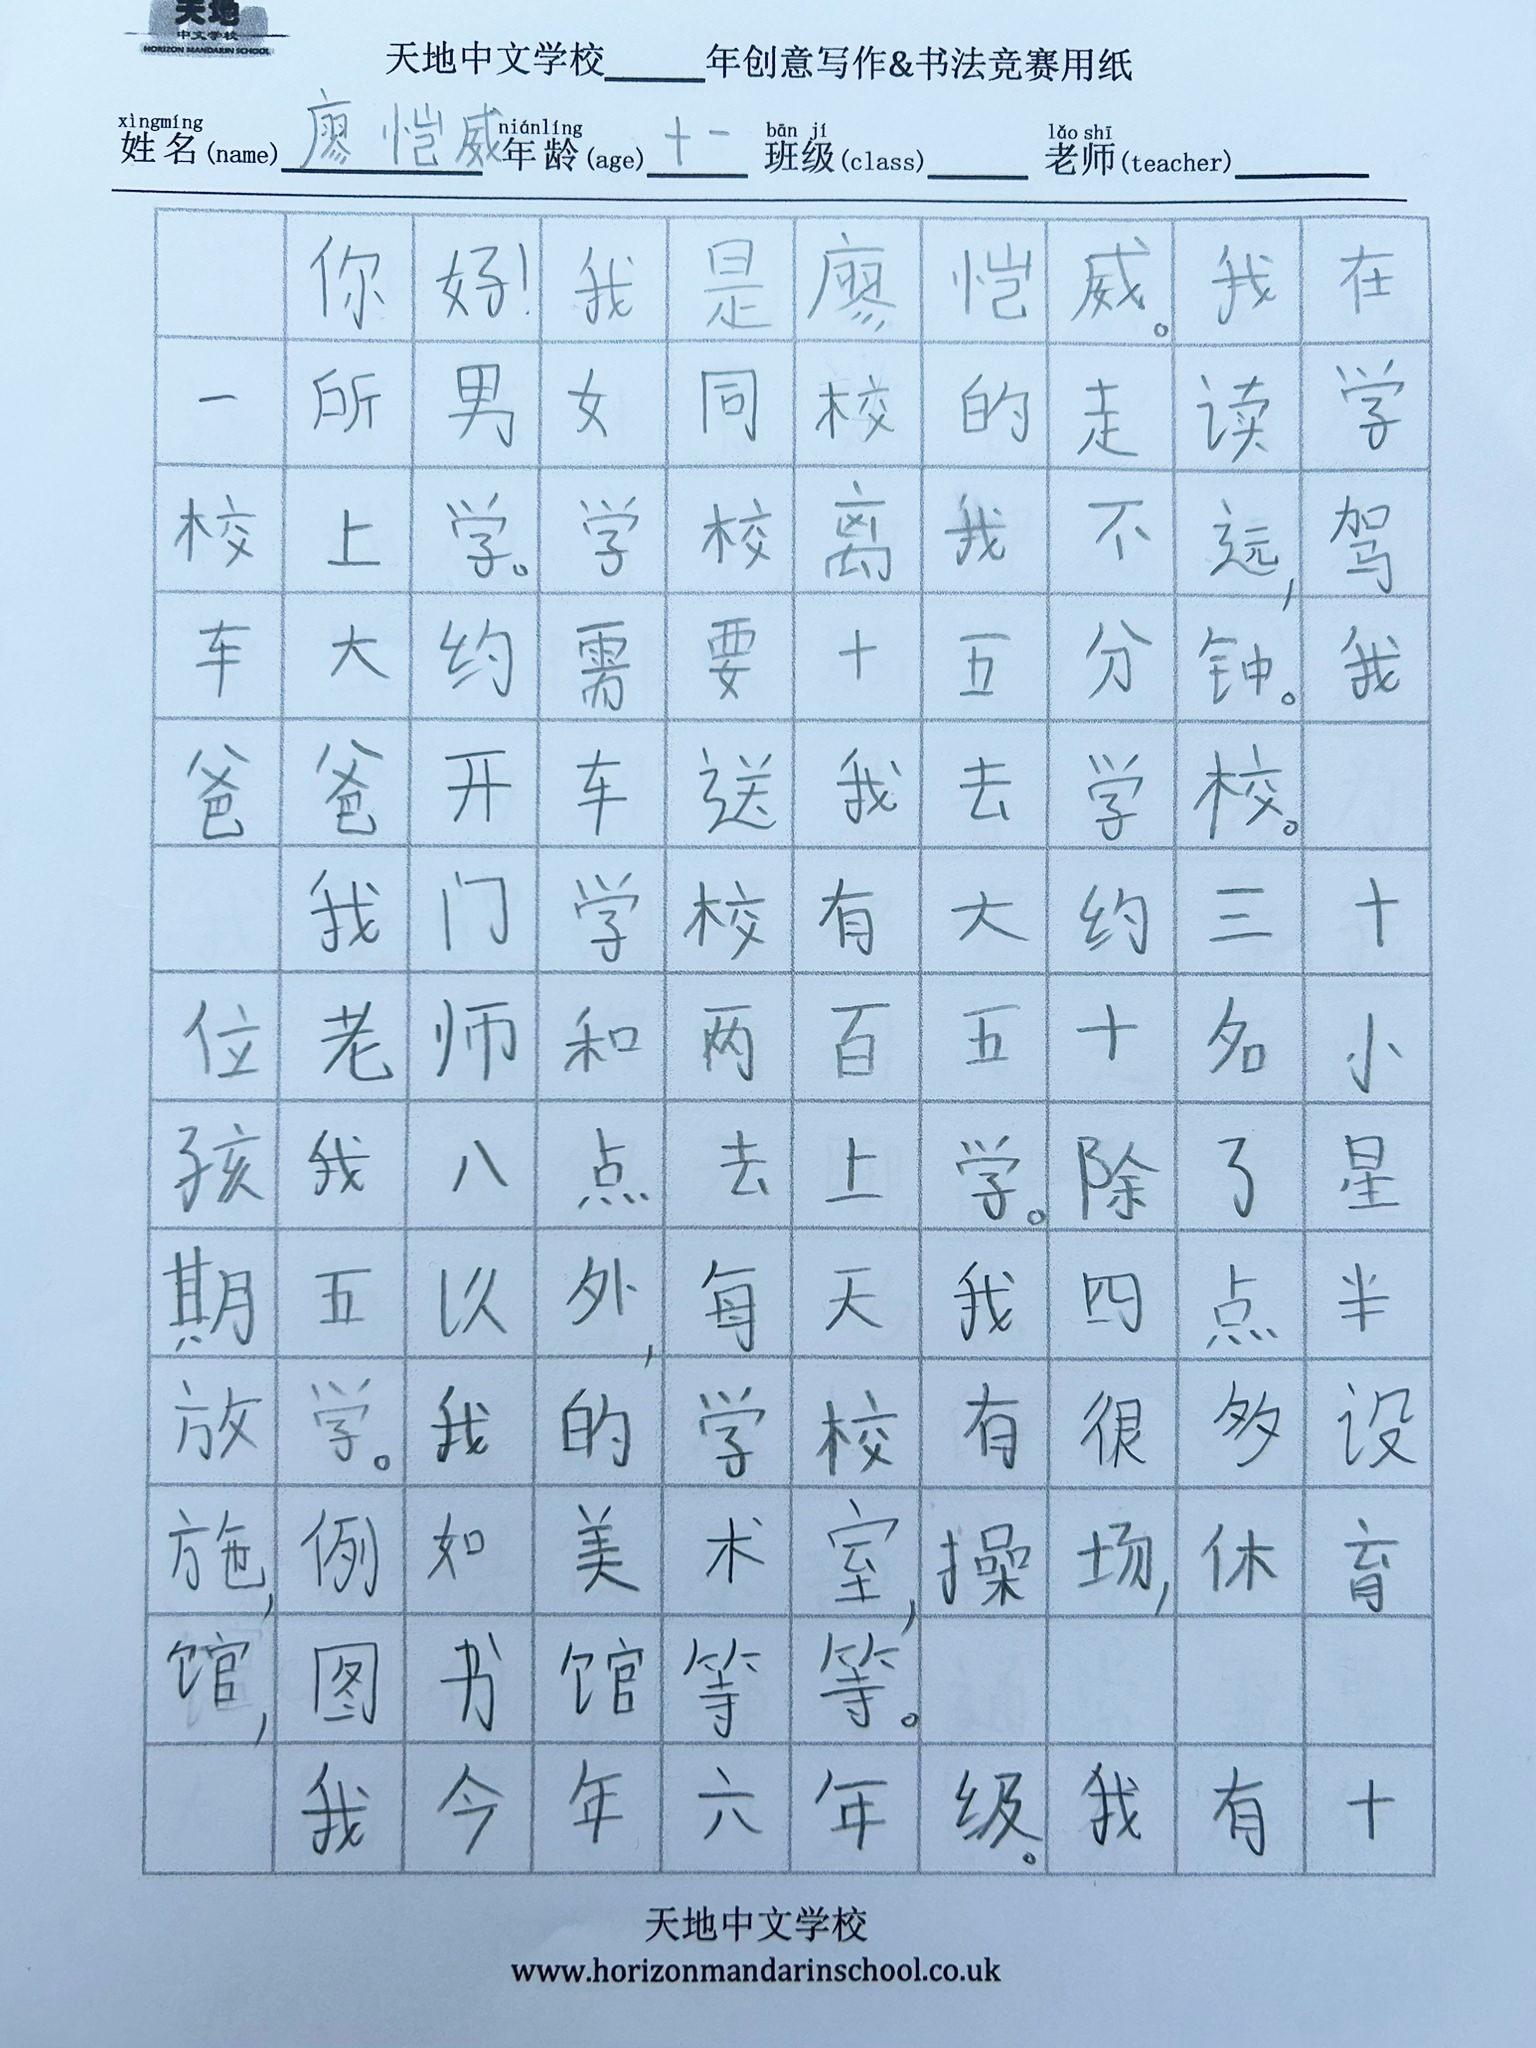 天地
中文学校
HORIZON MANDARIN SCHOOL
天地中文学校_____年创意写作&书法竞赛用纸
xìngmíng niánlíng bān jí lǎo shī
姓名(name) 廖恺威 年龄(age) 十一 班级(class)_____ 老师(teacher)_____
你好!我是廖恺威。我在
一所男女同校的走读学
校上学。学校离我不远,驾
车大约需要十五分钟。我
爸爸开车送我去学校。
我门学校有大约三十
位老师和两百五十名小
孩我八点去上学。除了星
期五以外,每天我四点半
放学。我的学校有很多设
施,例如美术室,操场,休育
馆,图书馆等等。
我今年六年级。我有十
天地中文学校
www.horizonmandarinschool.co.uk